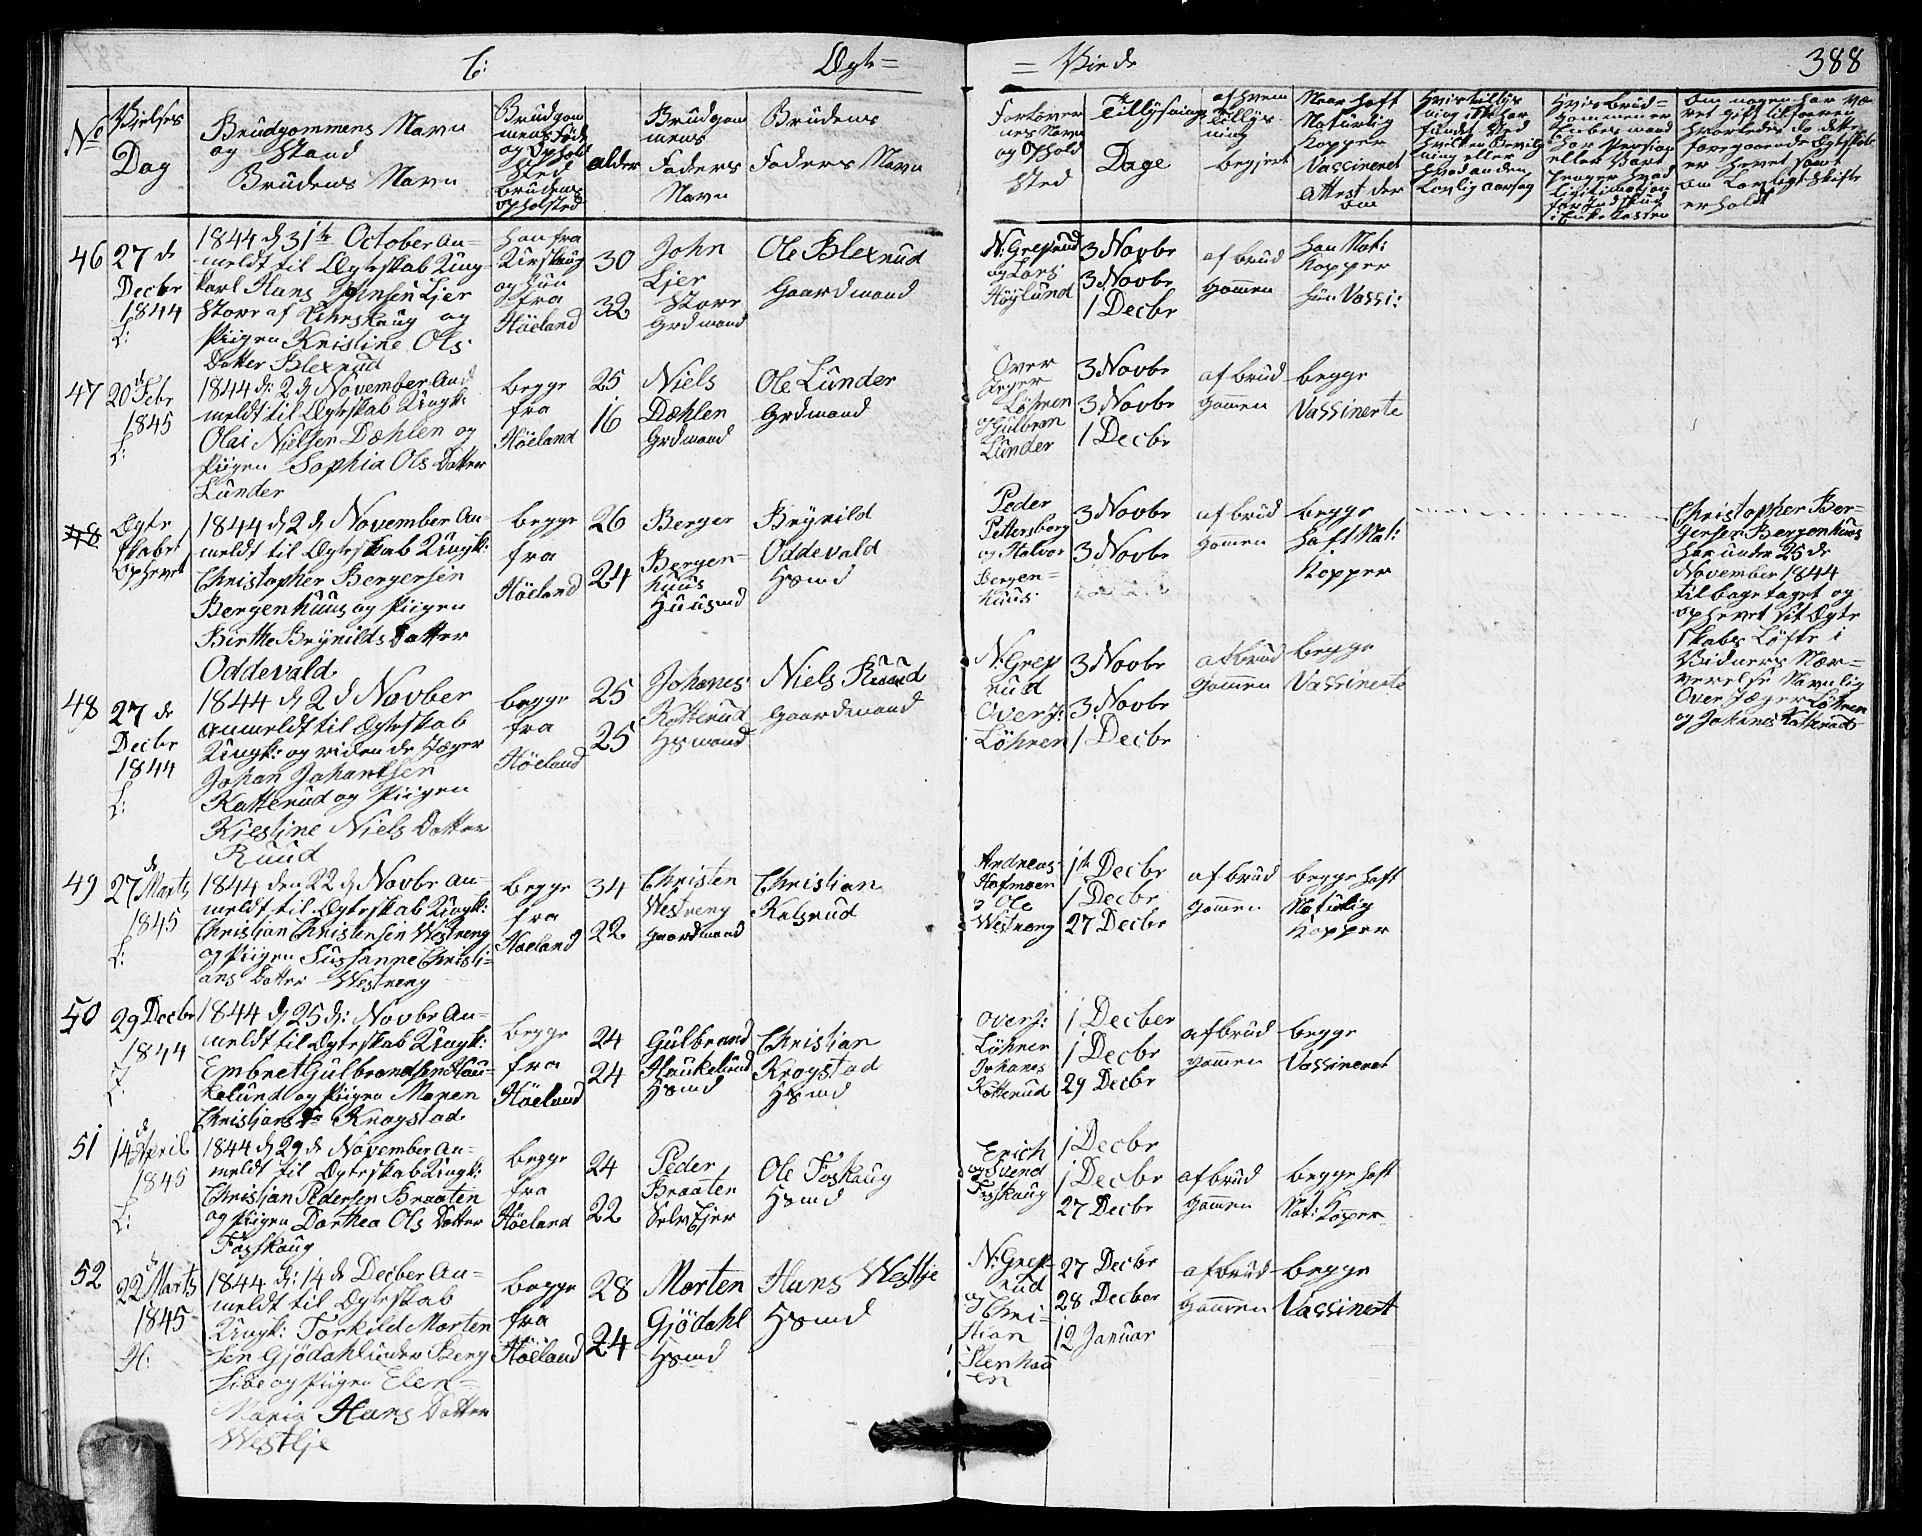 C:
Ægte=
= Viede
388
No
Vielses
Dag
Brudgommens Navn
og Stand
Brudens Navn
Brudgom
mens føde
og Ophold
Sted
Brudens
opholsted
alder
Brudgom
mens
Faders
Navn
Brudens
Faders Navn
Forlover
nes Navn
og Ophold
Sted
Tillysnings
Dage
af hvem
Tillys-
ning
begjert
Naar haft
Naturlig
Kopper
Vassineret
Attest der
om
Hvis tillys
ning ikke har
fundet Sted
hvilken Bevilg
ning eller
hvad anden
Lovlig aarsag
Hvis Brud=
gommen er
Enkemand
Om nogen har væ
ret gift tilforen
hvorledes da dette
foregaaende Ægteskab
er hevet samt
om Lovligt Skifte
er holdt
46
27 de
Decbr
1844
L:
1844 d 31te October An=
meldt til Ægteskab Ung-
karl Hans Jensen Ejer
Store af Kirskoug og
Piigen Kristine Ols
Datter Blexrud
han fra
Kirskoug
og hun
fra
Höeland
30
32
John
Ejer
Store
Grdmand
Ole Blexrud
Gaardmand
N: Greprud
og Lars
Höylund
3 Novbr
3 Novbr
1 Decbr
af brud
gommen
han Nat:
Kopper
hun Vassi:
47
20 d Febr
1845
L:
1844 d: 2 d November An
meldt til Ægteskab Ungk:
Olai Nielsen Dæhlen og
Piigen Sophia Ols Datter
Lunder
begge
fra
Höeland
25
16
Niels
Dæhlen
Grdmand
Ole Lunder
Grdmand
Over
Jeger
Löhren
og Gulbran
Lunder
3 Novbr
3 Novbr
1 Decbr
af brud
gommen
begge
Vassinerte
48
Ægte
skabet
Ophevet
1844 d 2 d November An
meldt til Ægteskab Ungk:
Christopher Bergersen
Bergenhuus og Piigen
Birthe Brynilds Datter
Oddevald
begge
fra
Höeland
26
24
Berger
Bergen-
huus
Huusmd
Brynild
Oddevald
Hsmd
Peder
Pettersborg
og Halvor
Bergen=
huus
3 Novbr
3 Novbr
af brud
gomen
begge
haft Nat:
Kopper
Christopher Ber-
gersen Bergenhuus
har under 25 de
November 1844
tilbagetaget og
ophevet sit Ægte
skabs Löfte i
Vidners Nær=
verelse Navnlig
Over Jæger Löhren
og Johanes Katterud
48
27 de
Decbr
1844
L:
1844 d 2 d Novber
anmeldt til Ægteskab
Ungk: og ridende Jæger
Johan Johansen
Katterud og Piigen
Kjestine Niels Datter
Ruud
begge
fra
Höeland
25
25
Johanes
Katterud
Hsmand
Niels Ruud
Gaardmand
N: Grep
rud
Over J:
Löhren
3 Novbr
3 Novbr
1 Decbr
af brud
gommen
begge
Vassinerte
49
27 d Marts
1845
L:
1844 den 22 d Novbr An-
meldt til Ægteskab Ungk:
Christjan Christensen Westreng
og Piigen Susanne Christi-
ans Datter Westreng
begge
fra
Hoeland
34
22
Christen
Westreng
Gaardmand
Christian
Kalsrud
Andreas
Hofmoen
og Ole
Westreng
1te Decbr
1 Decbr
27 Decbr
af brud
gommen
begge haft
Naturlig
Kopper
50
29 Decbr
1844
L:
1844 d 25 d: Novbr An-
meldt til Ægteskab Ungk:
Embret Gulbrandsen Hau-
kelund og Piigen Maren
Christjans Dr Krogstad
begge
fra
Höeland
24
24
Gulbrand
Haukelund
Hsmd
Christian
Krogstad
Hsmd
Over J:
Löhren
Johanes
Katterud
1 Decber
1 Decbr
29 Decbr
af brud
gommen
begge
Vassineret
51
14 d April
1845
L:
1844 d 29 de November An-
meldt til Ægteskab Ungk:
Christjan Pedersen Braaten
og Piigen Dorthea Ols Datter
Fosskoug
begge
fra
Höeland
24
22
Peder
Braaten
SelvEjer
Ole Foskoug
Hsmd
Erich
og Svend
Fosskoug
1 Decbr
1 Decbr
27 Decbr
af brud
gommen
begge haft
Nat: Kopper
52
22 d Marts
1845
H:
1844 d: 14 de Decber An-
meldt til Ægteskab
Ungk: Torkild Morten
sen Gjödahl under Berg
Siöe og Piigen Elen=
Maria Hans Datter
Westlje
begge
fra
Höeland
28
24
Morten
Gjödahl
Hsmd
Hans Westlje
Hsmd
N: Grep-
rud
og Chri-
stian
Stenhau
en
27 Decbr
28 Decber
12 Januar
af brud
gommen
begge
Vassinert